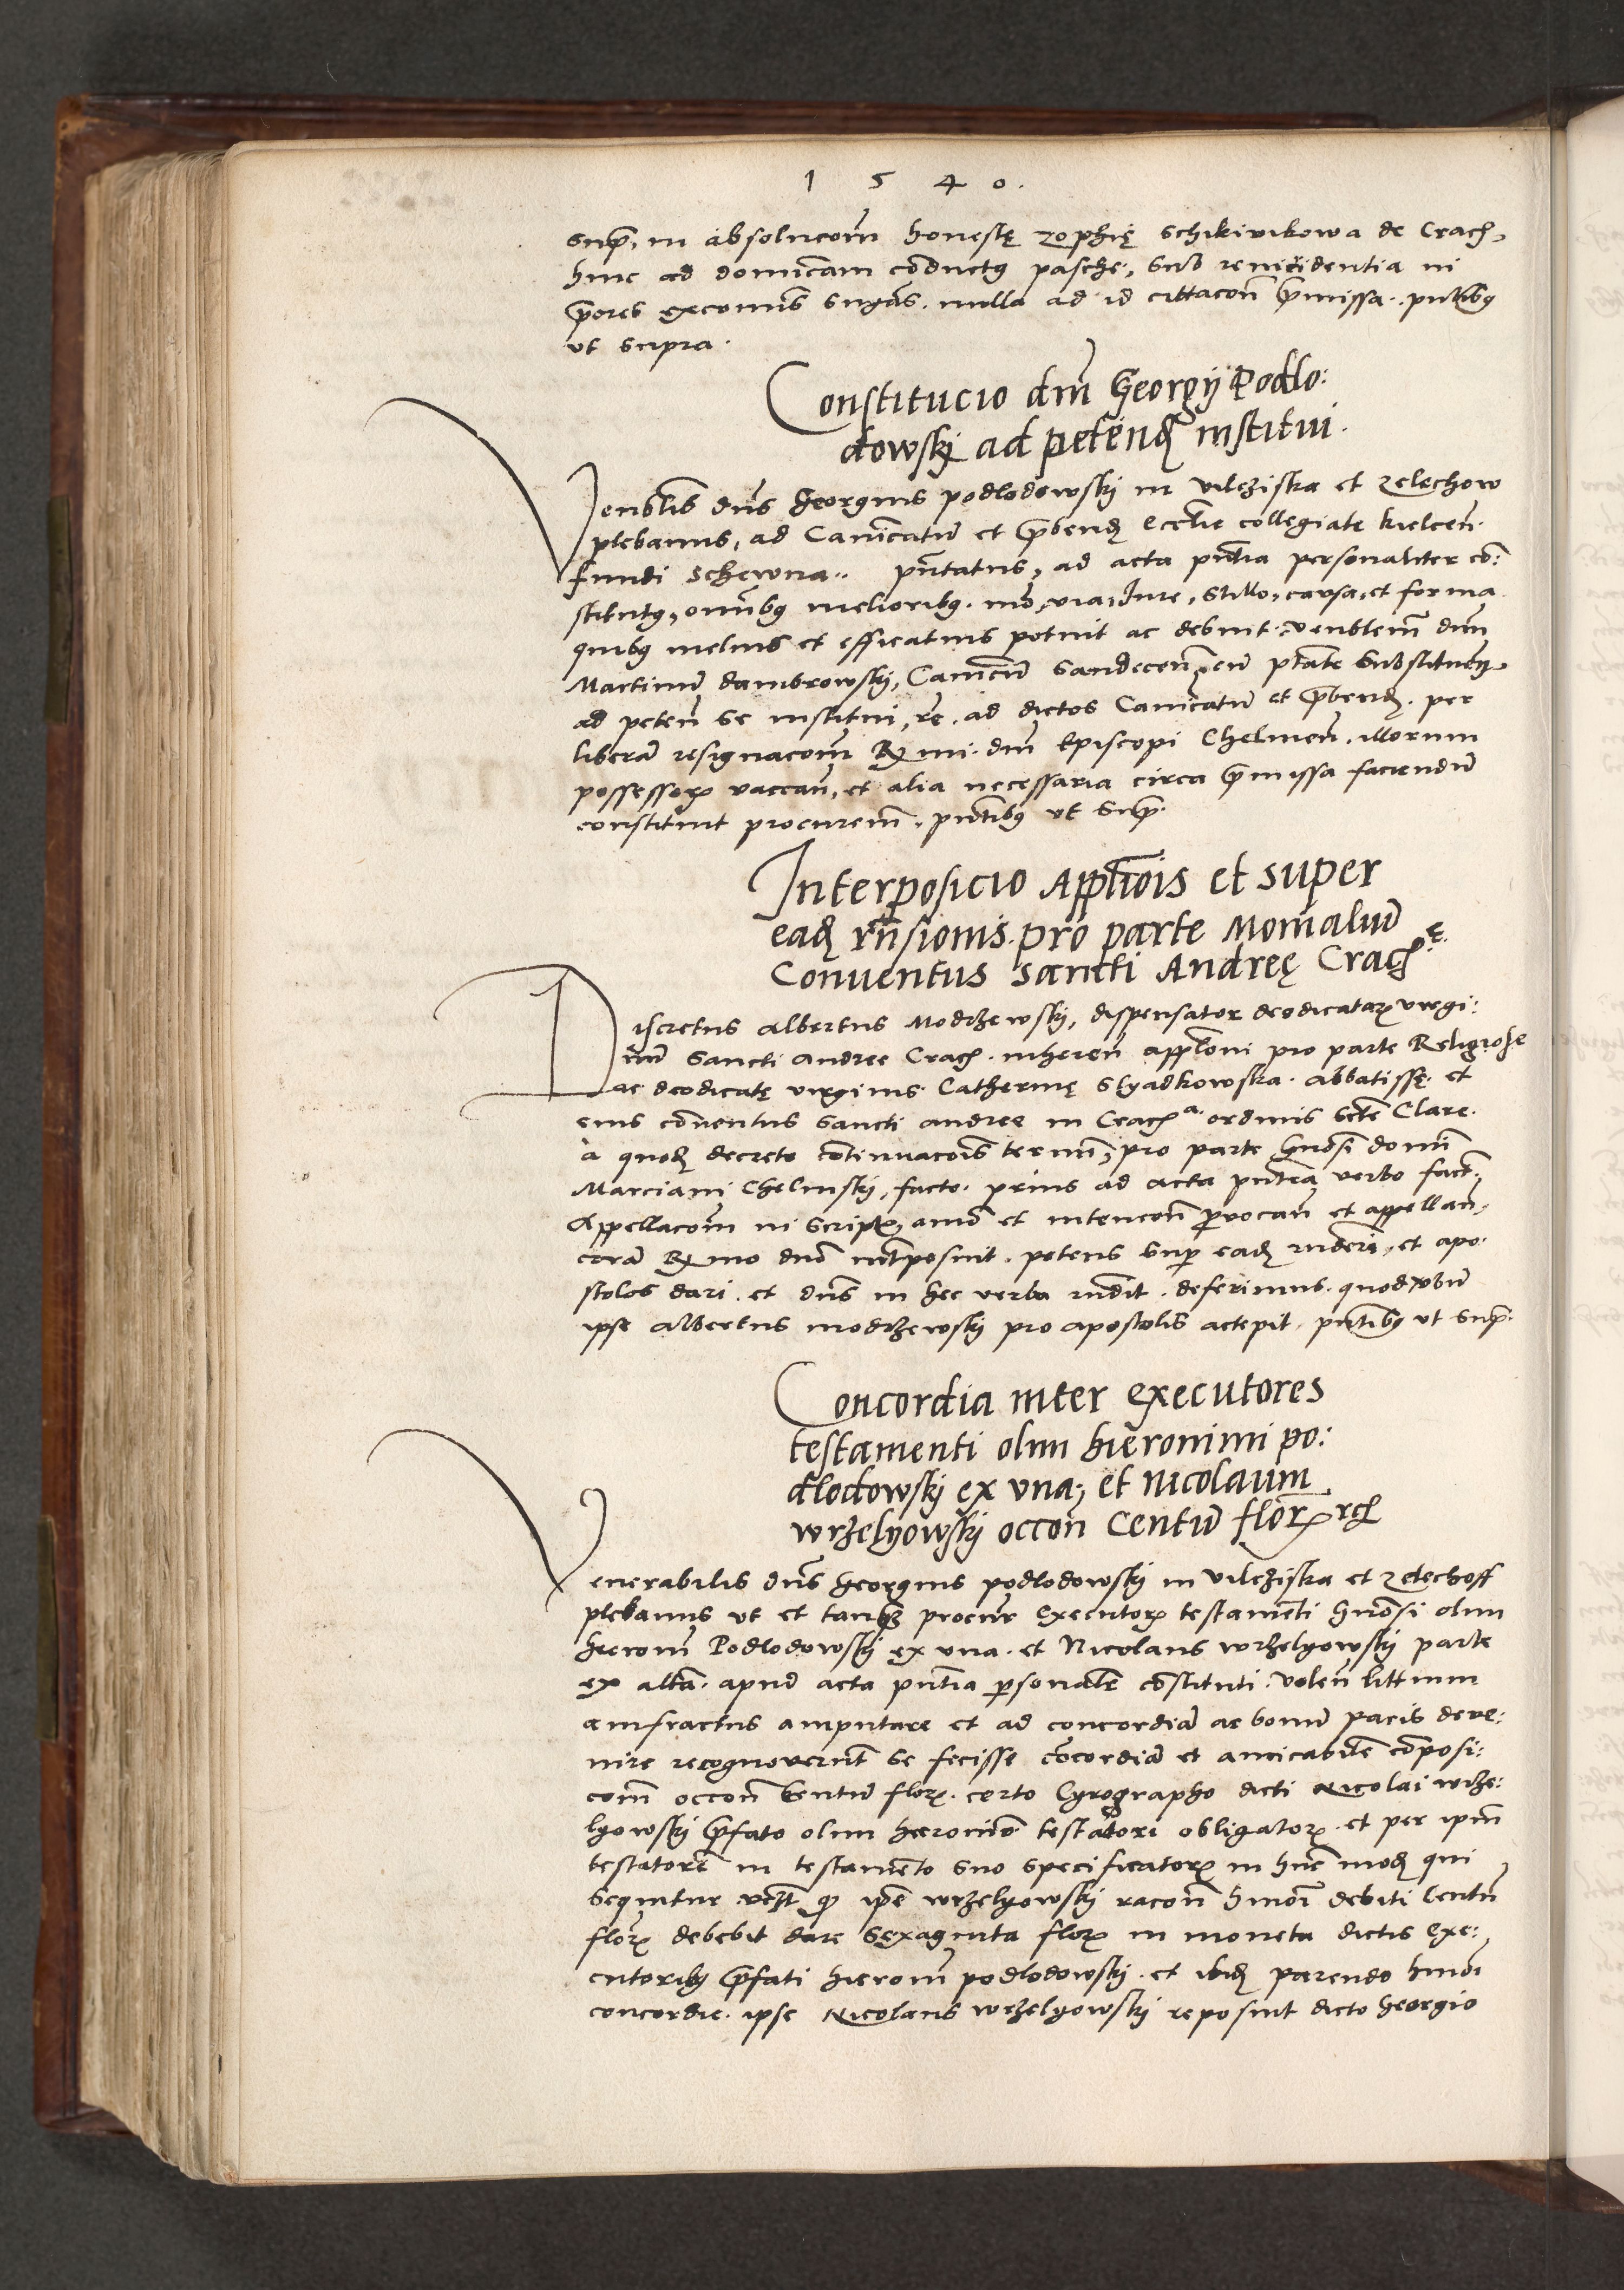 1 5 4 0.
supra, in absolucoem honestę zophię Schikiwikowa de Crac,
hinc ad domicam conductus pasche, sub reincidentia in
priores excomis suyas. nulla ad id cittacoen premissa. pntibus
ut supra.
Constitucio dni Georgij Podlo:
dowskj ad petend institui.
Venblis dns Georgius podlodowskj in vilcziska et zelechow
plebanus, ad Canicatu et prebend ecctie collegiate kielcen.
fundi schewna.. pntatus, ad acta pntia personaliter co:
stitutus, omibus melioribus. mo, via, Jure, stillo, causa, et forma
quibus melius et efficatius potuit ac debuit. venblem dnm
Martinu dambrowskj, Canicu Sandecen, cu ptate substituen
ad peten se institui, re. ad dictos Canicatu et prebend. per
libera resignacom R mi. dni Episcopi Chelmen. illorum
possessor vaccan, et alia necessaria circa premissa faciendu
constituit procurem. pntibus ut supra.
Interposicio Applnois et super
ead rnsionis. pro parte Monialiu
Conventus sancti Andreę Crac
Discretus albertus Modrzewskj, dispensator deodicatar virgi:
nu Sancti andree Crac. inheren applnoni pro parte Religiosę
ac deodicatę virginis Catherinę Slyadkowska. abbatissę et
eius conventus Sancti andree in Crac a. ordinis scte Clare.
à quod decreto continuacois termi, pro parte Gnosi domi
Marciani Chelmskj, facto. prius ad acta pntia verbo fact,
Appellacom in scriptis, animo et intencon provocan et appellan,
cora R mo dno interposuit. petens super ead rnderi, et apo
stolos dari. et dns in hec verba rndit. deferimus. quod verbu
ipse albertus modrzewskj pro apostolis accepit. pntibus ut supra.
Concordia inter executores
testamenti olim hieronimi po:
dlodowskj ex una, et nicolaum
wrzelyowskj occon Centu flor rc
Venerabilis dns Georgius podlodowskj in vilcziska et zelechoff
plebanus ut et tanq procur executor testamenti Gnosi olim
hieroni Podlodowskj ex una. et Nicolaus wrzelyowskj parte
ex alta. apud acta pntia personale constituti. volen littium
amfractus amputare et ad concordia ac bonu pacis deve:
nire recognoverut se fecisse concordia et amicabile composi:
com occon Centu flor. certo Cyrographo dicti Nicolai wrze:
lyowskj prefato olim hieronimo testatori obligator. et per ipm
testatore in testamento suo specificator in hunc mod qui
sequitur videlt q ipe wrzelyowskj racon hmoi debiti Centu
flor debebit dare Sexaginta flor in moneta dictis exe:
cutoribus prefati hieroni podlodowskj. et ibid parendo hmoi
concordie. ipse Nicolaus wrzelyowskj reposuit dicto Georgio